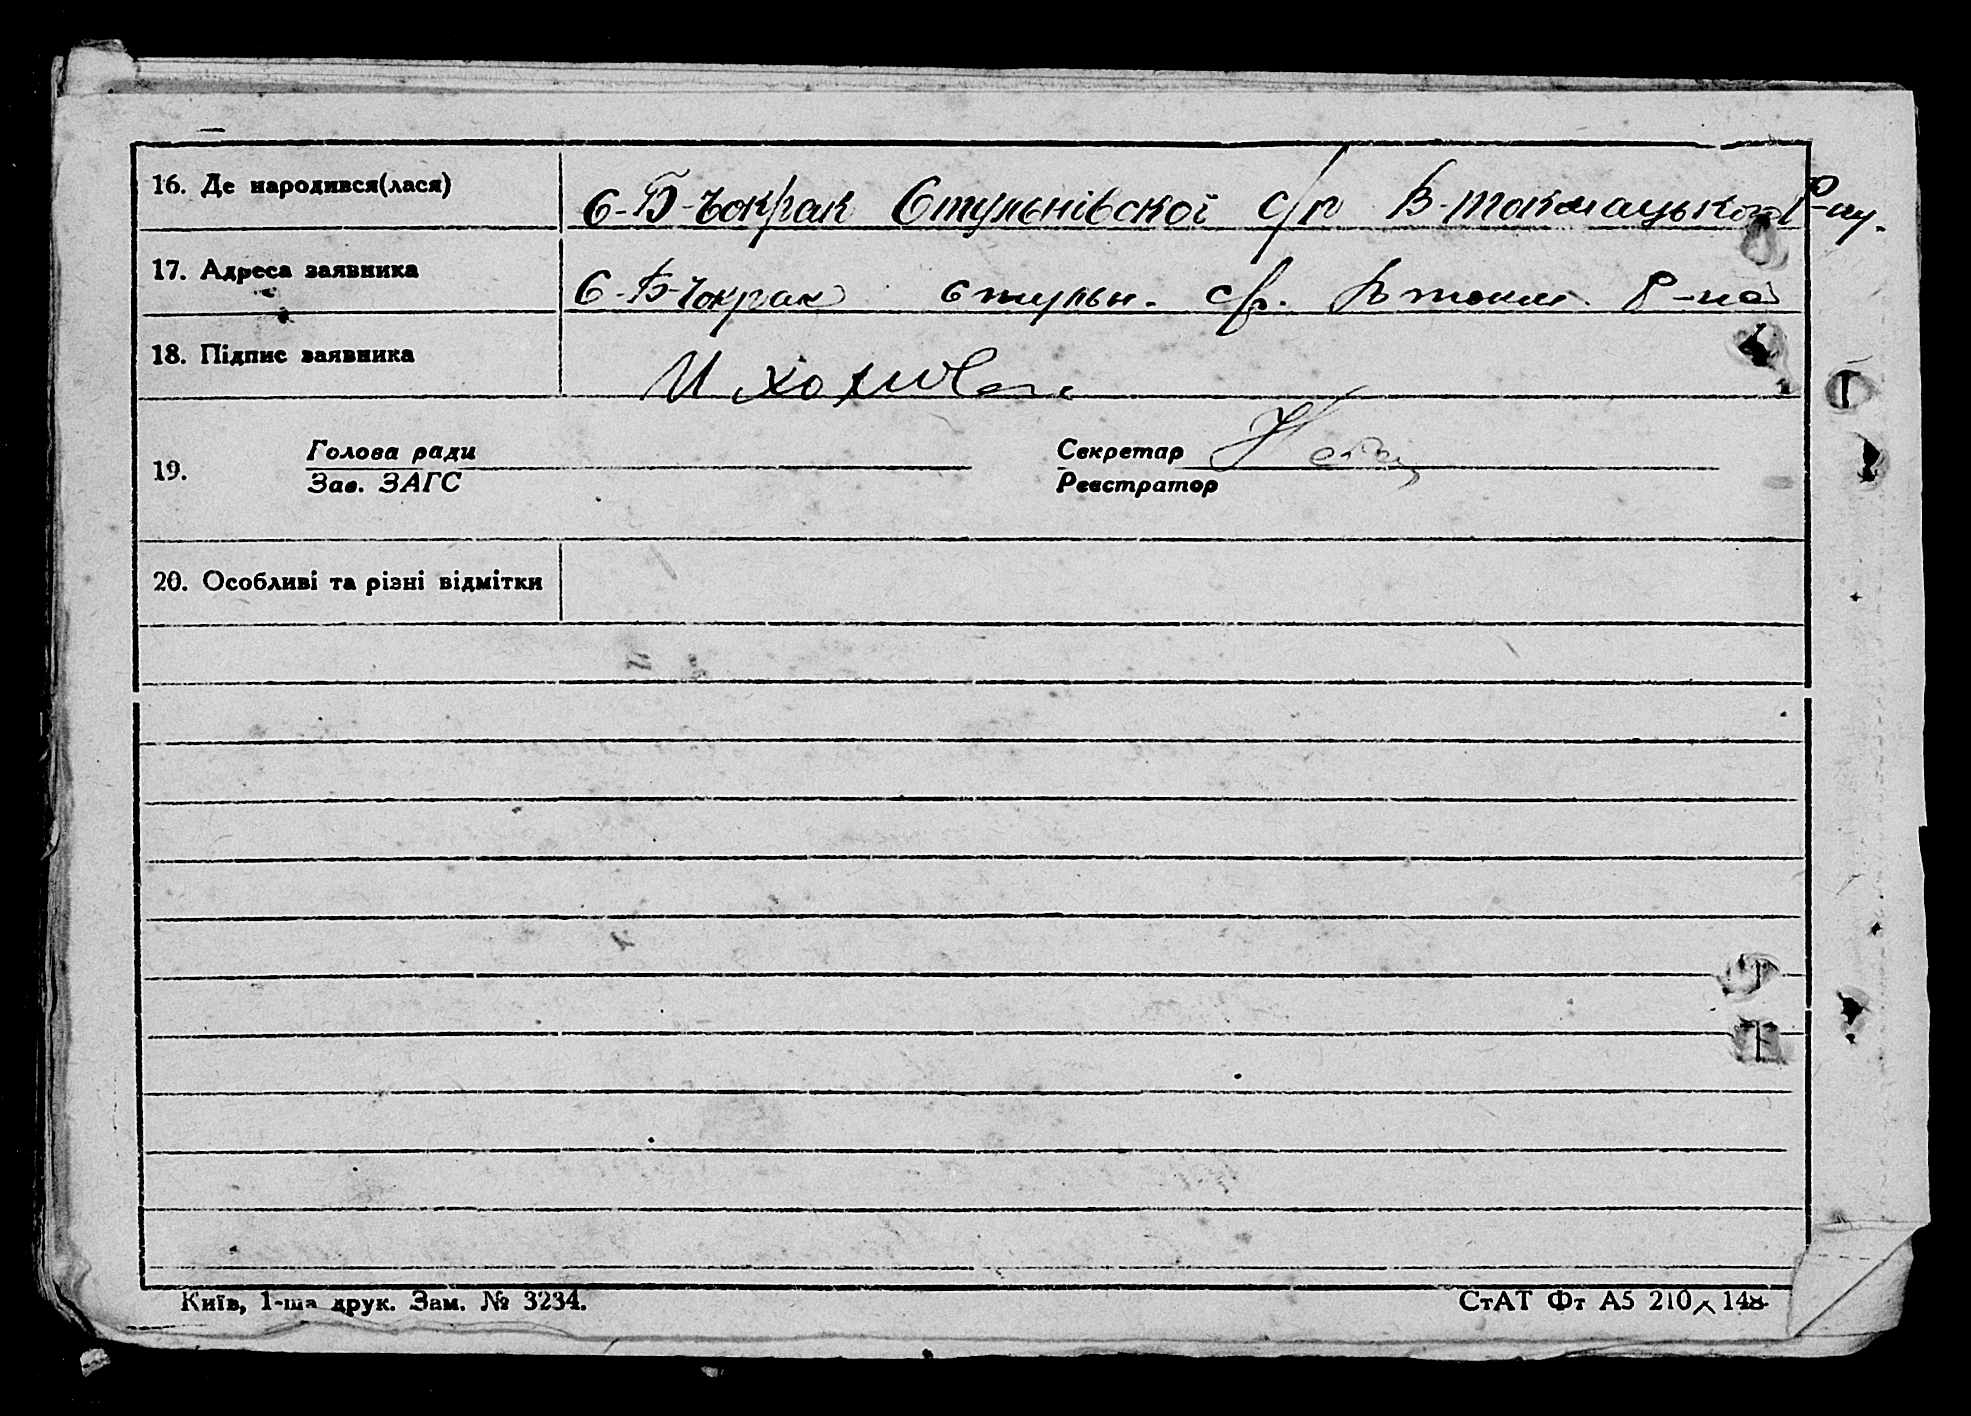 16. Де народився(лася) с-Б-Чокрак Стульнівскої с/р В-Токмацького Р-ну.
17. Адреса заявника с-Б-Чокрак стульн. с/р. Втокм. Р-на
18. Підпис заявника И
19. Голова ради Секретар
Зав. ЗАГС Реєстратор
20. Особливі та різні відмітки
Київ, 1-ша друк. Зам. № 3234. СтАТ Фт А5 210 × 148